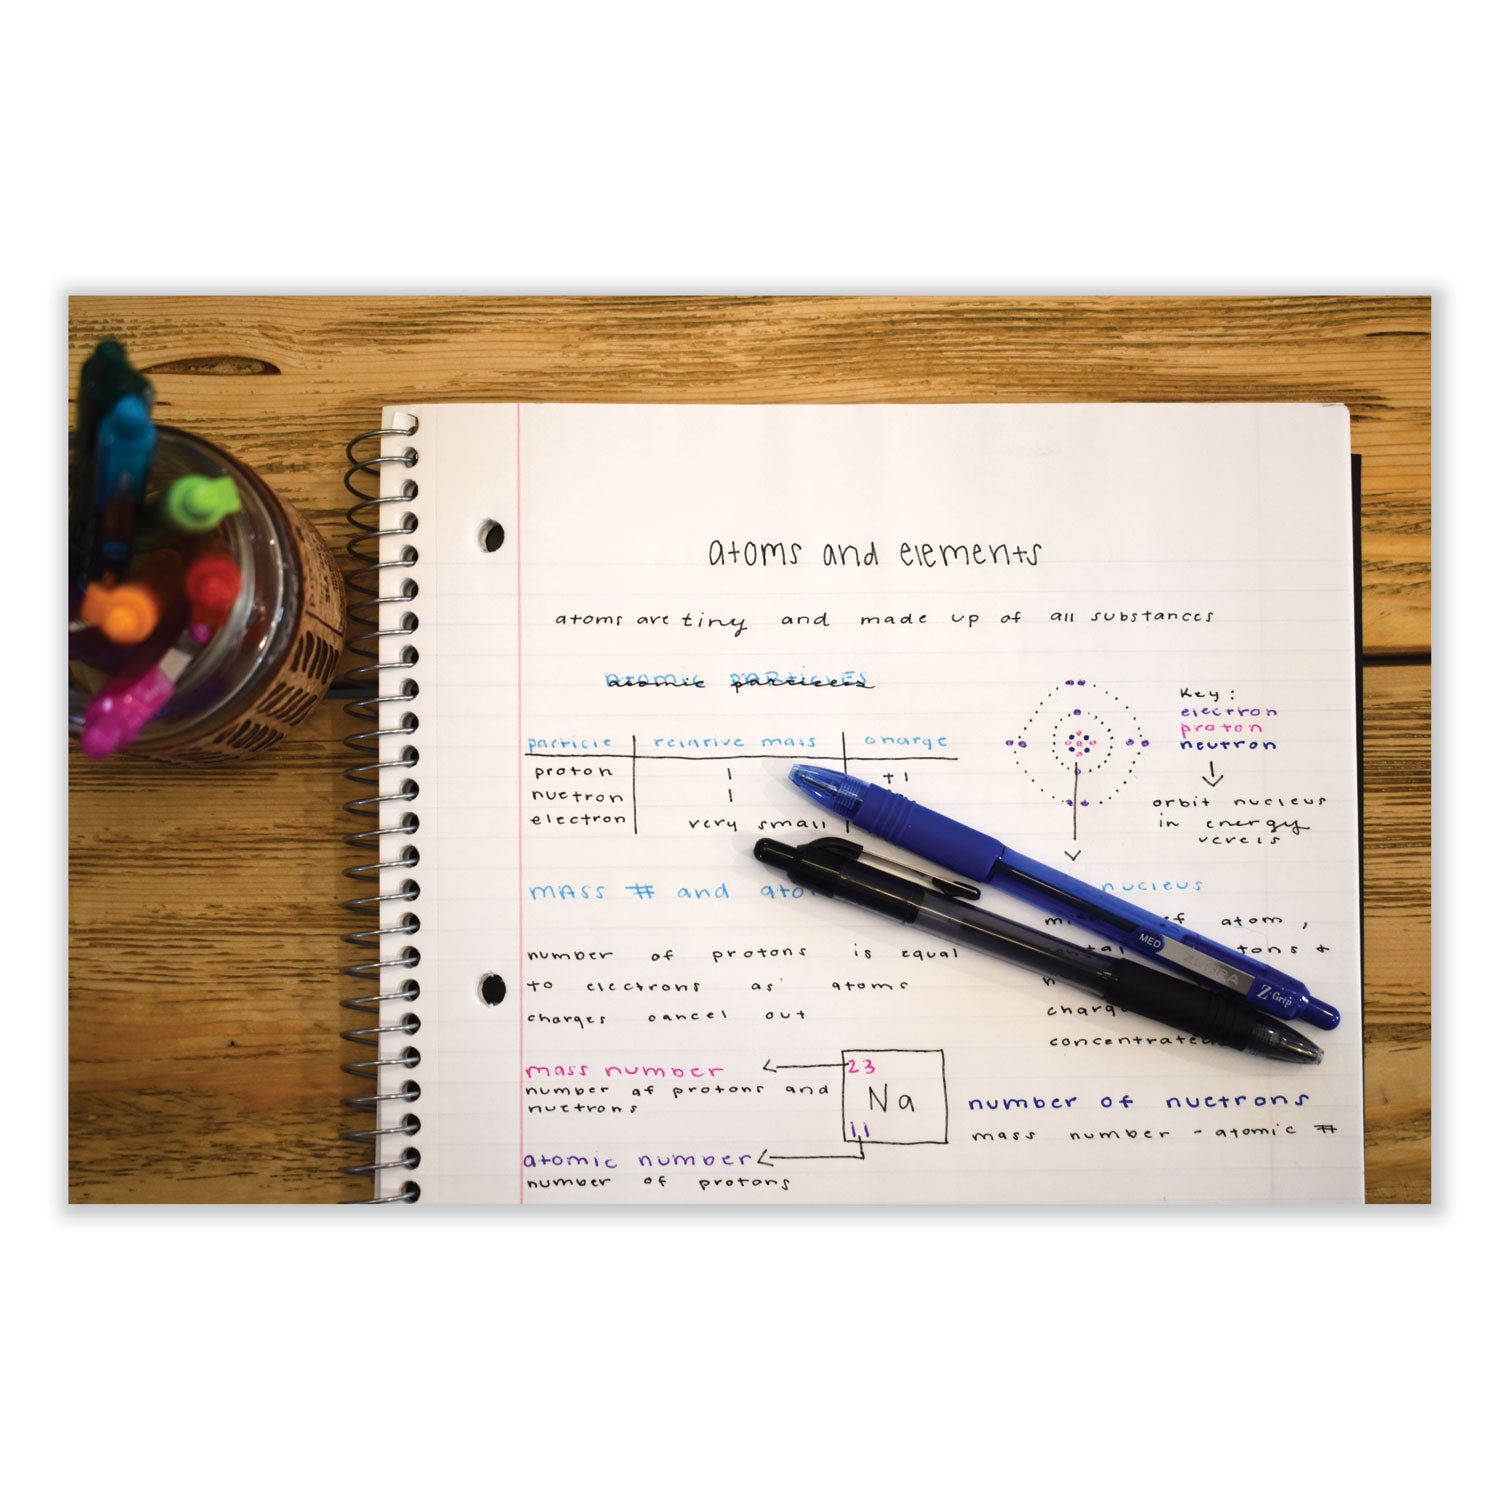 atoms and elements
atoms are tiny and made up of all substances
atomic particles
particle relative mass charge
proton 1 +1
nuetron 1
electron very small
Key:
electron
proton
neutron
orbit nucleus
in energy
nucleus
of atom,
&
concentrated
MASS # and
number of protons is equal
to electrons as atoms
charges cancel out
mass number
number of protons and
nuetrons
23
Na
11
atomic number
number of protons
number of nuetrons
mass number - atomic #
MED
ZEBRA
Z-Grip